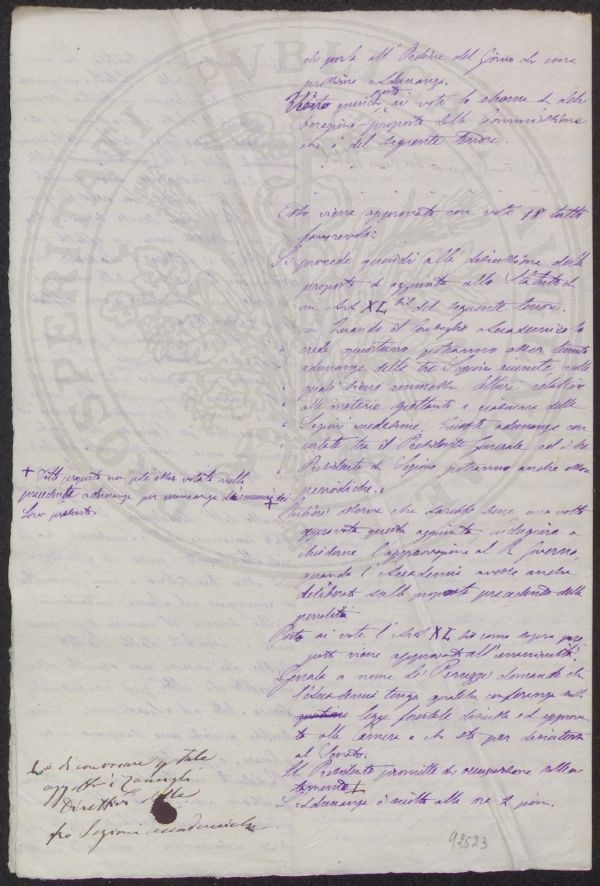 che porta all'Ordine del Giorno di una
prossima Adunanza.
posto
quindi ai voti lo schema di deli-
berazione proposto dalla Commissione
che è del seguente tenore.
Esso viene approvato con voti 18 tutti
favorevoli:
Si procede quindi alla discussione della
proposta di aggiunta allo Statuto di
un Art. XL bis del seguente tenore.
= il Consiglio Accademico lo
creda potranno esser tenute
adunanze delle tre Sezioni riunite, nelle
quali siano ammesse letture relative
alle materie spettanti a ciascuna delle
Sezioni medesime. Queste adunanze con-
certate tra il Presidente Generale ed i tre
Presidenti di Sezione potranno anche essere
periodiche.
+ Detto non poté esser votato nella
precedente adunanza per mancanza di numero dei
Soci presenti.
osserva che sarebbe bene una volta
approvata questa aggiunta, indugiare a
chiederne l'approvazione al R. Governo
quando l'Accademia avesse anche
deliberato sulla proposta precedente della
penalità
Posto ai voti l'Art. XL bis come sopra pro-
posto viene approvato all'unanimità.
a nome di Peruzzi domanda che
l'Accademia tenga qualche conferenza sulla
questione legge forestale discussa ed approva-
ta alla Camera e che sta per discutersi
al Senato.
Il Presidente promette di occuparsene
+
L'Adunanza è sciolta alle ore 2 pom.
+ e di convocare per tale
oggetto i Consigli
Direttivi delle
tre Sezioni accademiche
92523